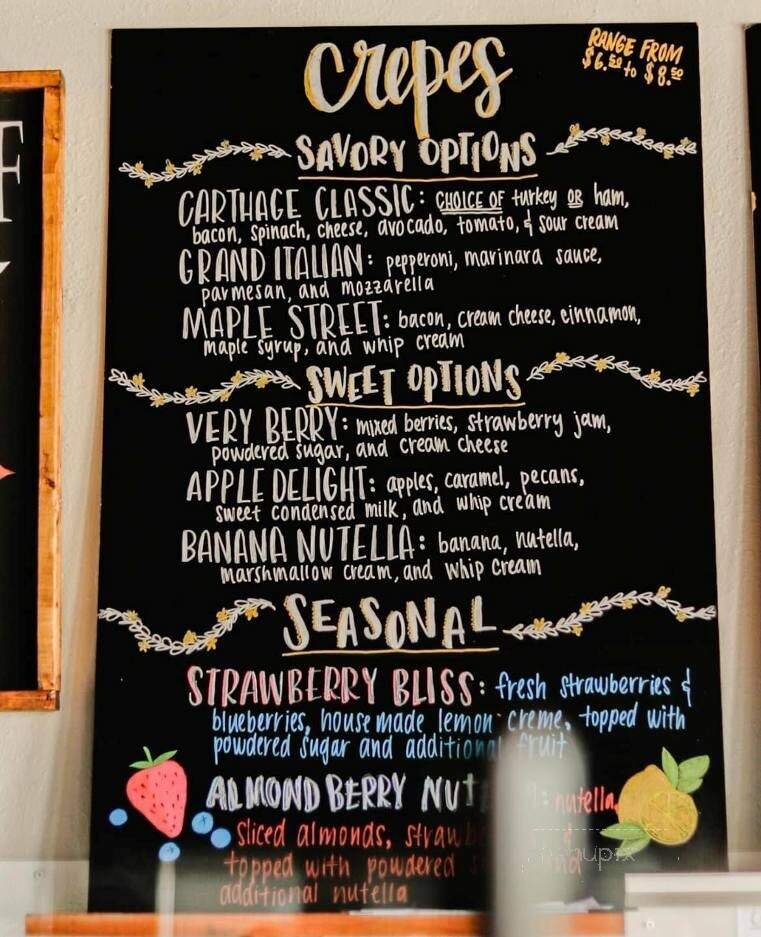 Crepes
RANGE FROM
$6.50 to $8.50
SAVORY OPTIONS
CARTHAGE CLASSIC: CHOICE OF turkey OR ham,
bacon, spinach, cheese, avocado, tomato, & sour cream
GRAND ITALIAN: pepperoni, marinara sauce,
parmesan, and mozzarella
MAPLE STREET: bacon, cream cheese, cinnamon,
maple syrup, and whip cream
SWEET OPTIONS
VERY BERRY: mixed berries, strawberry jam,
powdered sugar, and cream cheese
APPLE DELIGHT: apples, caramel, pecans,
sweet condensed milk, and whip cream
BANANA NUTELLA: banana, nutella,
marshmallow cream, and whip cream
SEASONAL
STRAWBERRY BLISS: fresh strawberries &
blueberries, house made lemon creme, topped with
powdered sugar and additional fruit
ALMOND BERRY : nutella,
sliced almonds,
topped with powdered
additional nutella